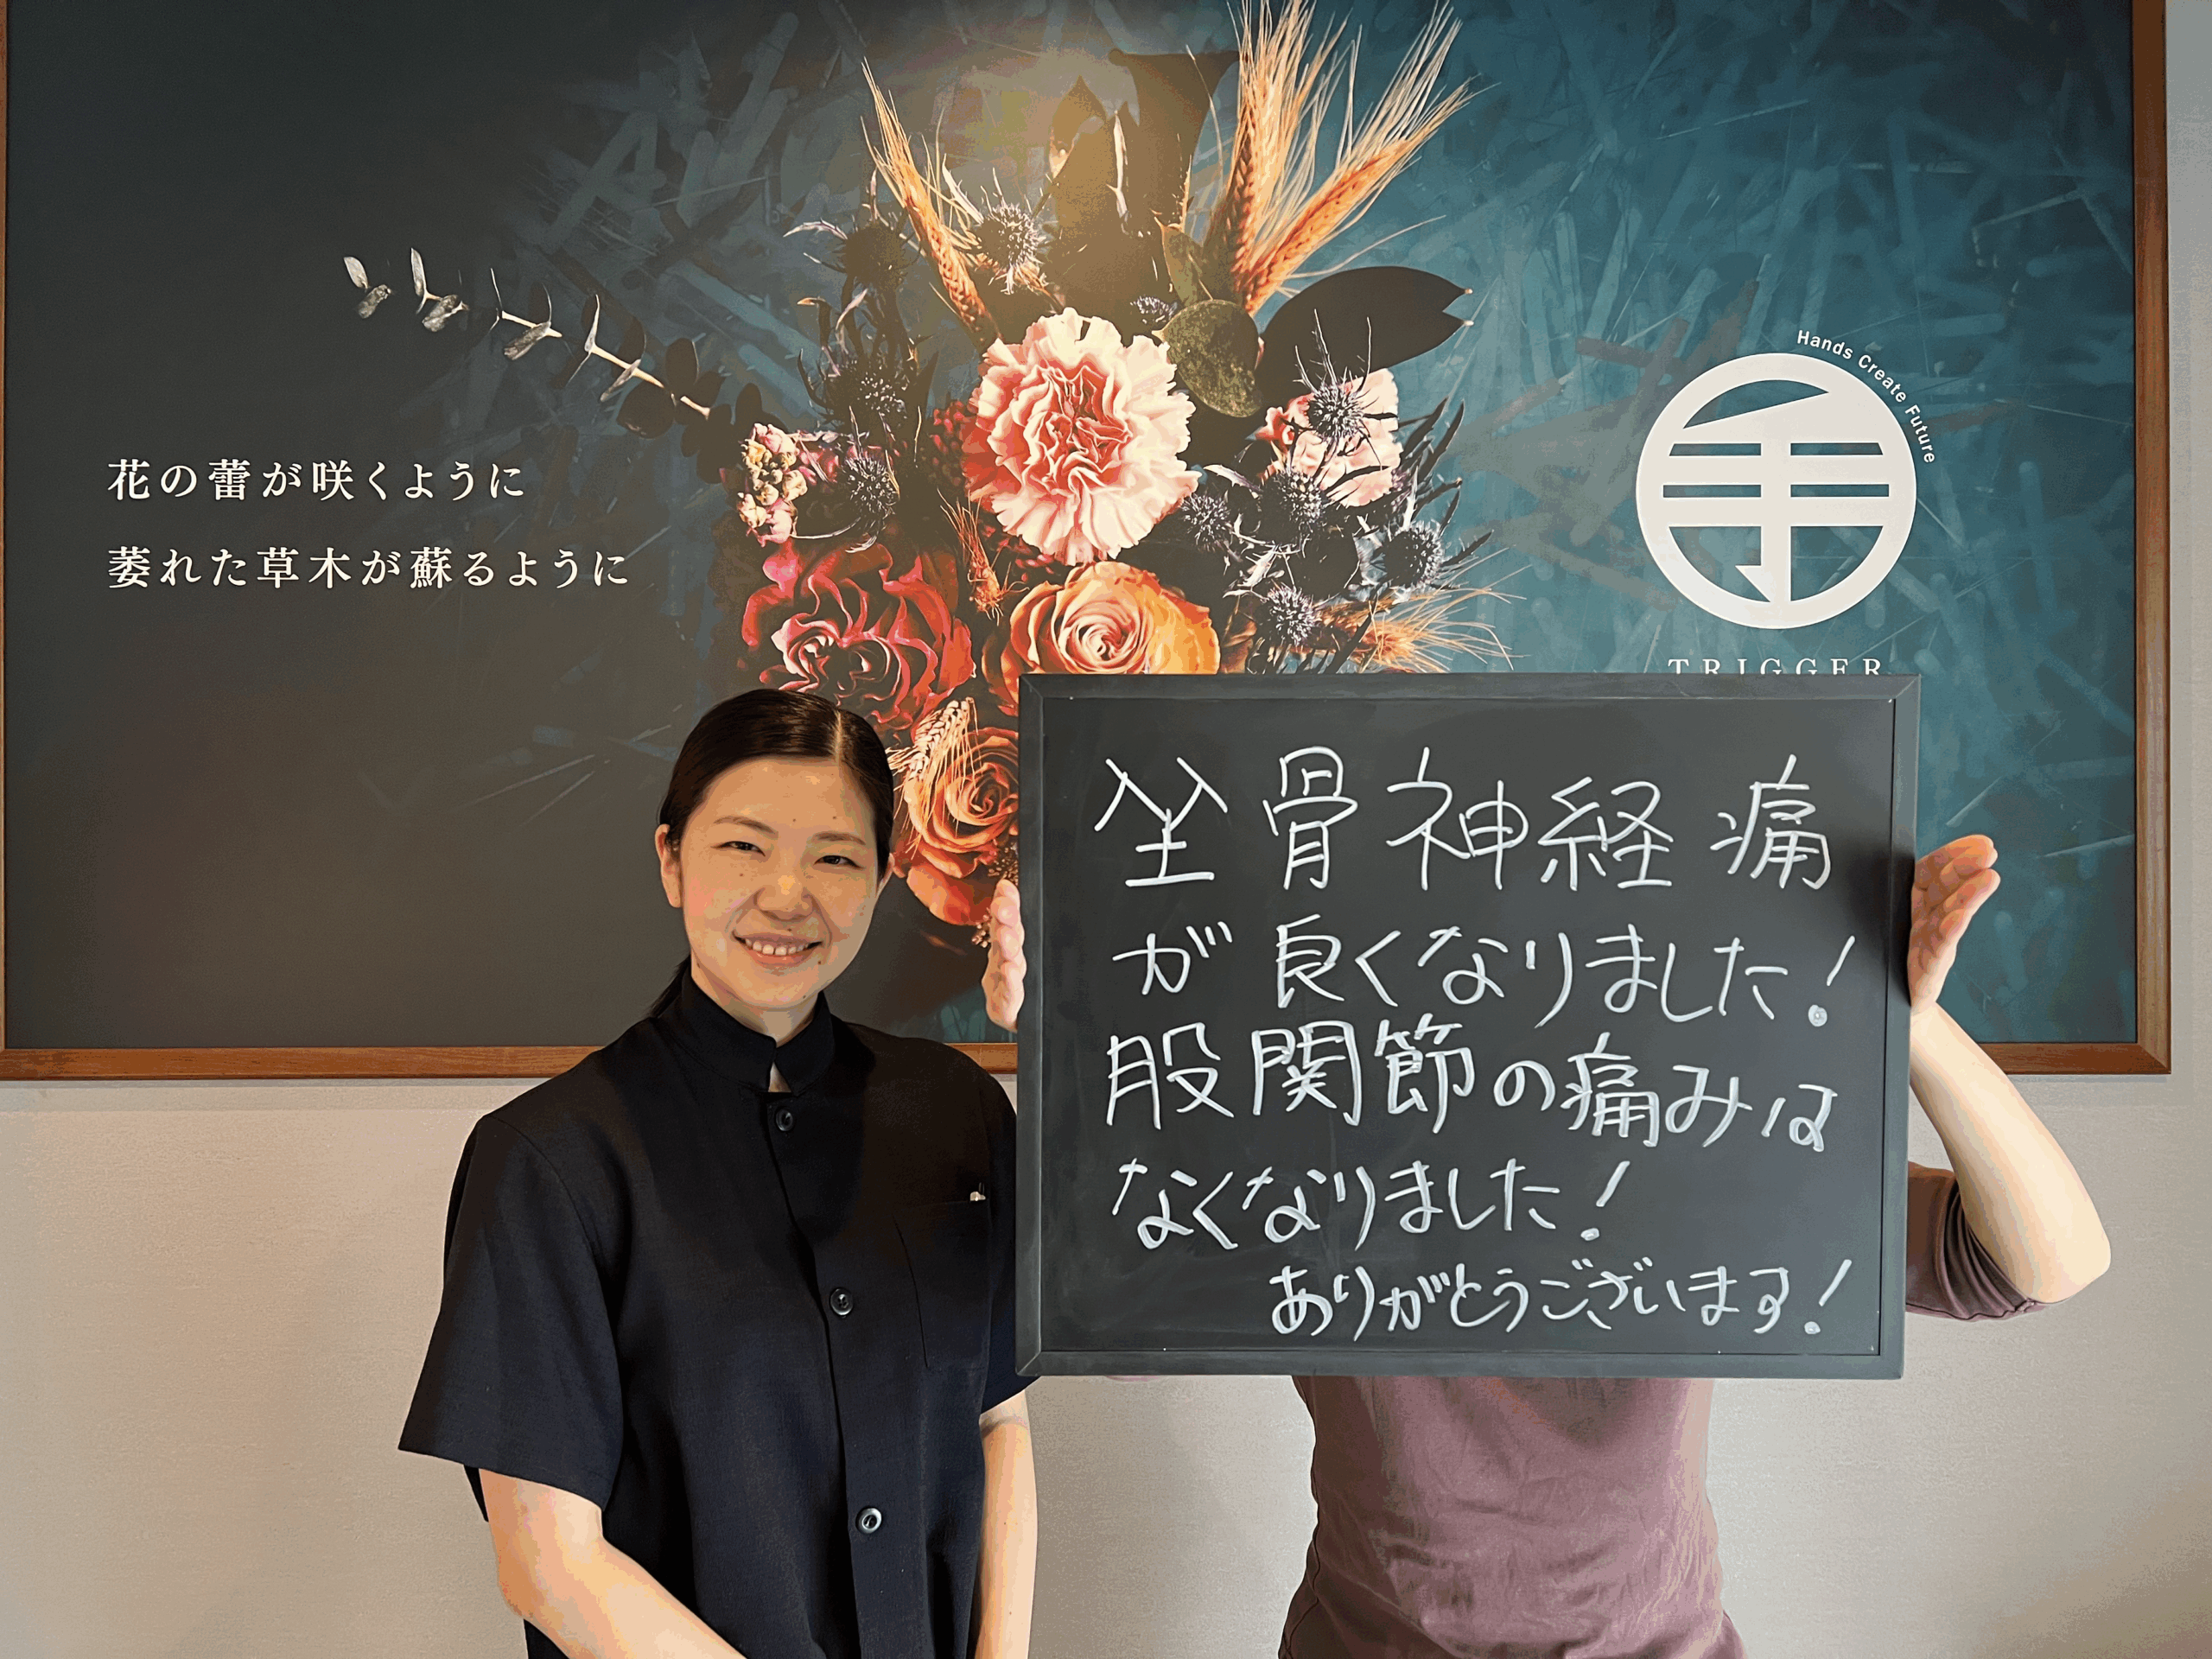 花の蕾が咲くように
萎れた草木が蘇るように
Hands Create Future
手
TRIGGER
坐骨神経痛
が良くなりました！
股関節の痛みは
なくなりました！
ありがとうございます！